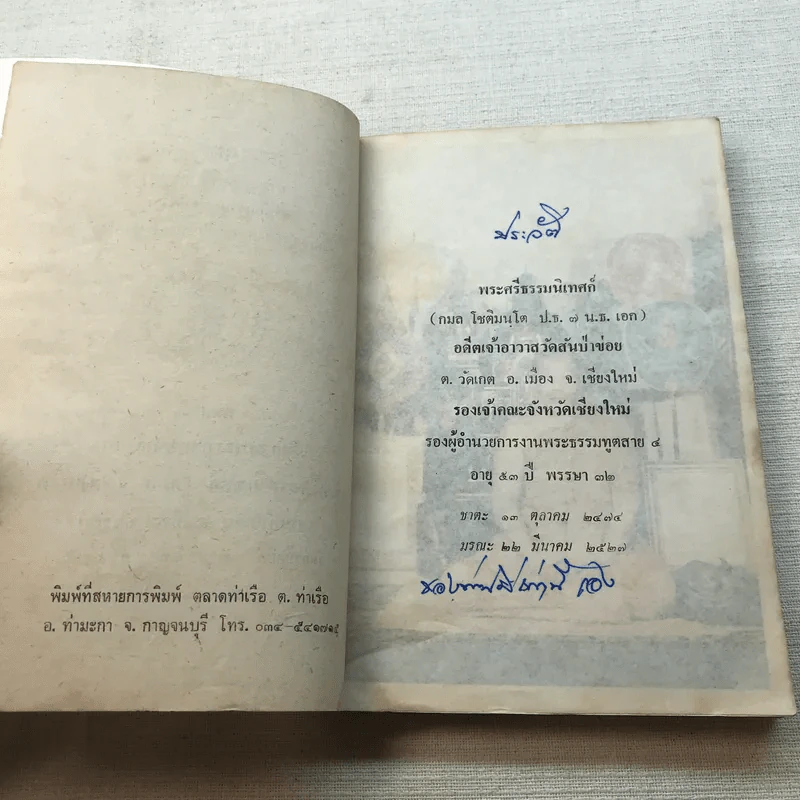 พิมพ์ที่สหายการพิมพ์ ตลาดท่าเรือ ต. ท่าเรือ
อ. ท่ามะกา จ. กาญจนบุรี โทร. ๐๓๔-๕๔๑๗๑๕
ประวัติ
พระศรีธรรมนิเทศก์
(กมล โชติมนฺโต ป.ธ. ๗ น.ธ. เอก)
อดีตเจ้าอาวาสวัดสันป่าข่อย
ต. วัดเกต อ. เมือง จ. เชียงใหม่
รองเจ้าคณะจังหวัดเชียงใหม่
รองผู้อำนวยการงานพระธรรมทูตสาย ๔
อายุ ๕๓ ปี พรรษา ๓๒
ชาตะ ๑๓ ตุลาคม ๒๔๗๔
มรณะ ๒๒ มีนาคม ๒๕๒๗
ของท่านมีเท่านี้เอง